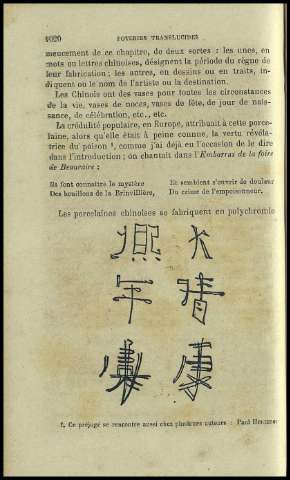 1020 POTERIES TRANSLUCIDES
mencement de ce chapitre, de deux sortes : les unes, en
mots ou lettres chinoises, désignent la période du règne de
leur fabrication ; les autres, en dessins ou en traits, in-
diquent ou le nom de l'artiste ou la destination.
Les Chinois ont des vases pour toutes les circonstances
de la vie, vases de noces, vases de fête, de jour de nais-
sance, de célébration, etc., etc.
La crédulité populaire, en Europe, attribuait à cette porce-
laine, alors qu'elle était à peine connue, la vertu révéla-
trice du poison ¹, comme j'ai déjà eu l'occasion de le dire
dans l'introduction ; on chantait dans l'Embarras de la foire
de Beauraire :
Ils font connaître le mystère
Des bouillons de la Brinvillière,
Et semblent s'ouvrir de douleur
Du crime de l'empoisonneur.
Les porcelaines chinoises se fabriquent en polychromie
大清康
熙年製
1. Ce préjugé se rencontre aussi chez plusieurs auteurs : Paul